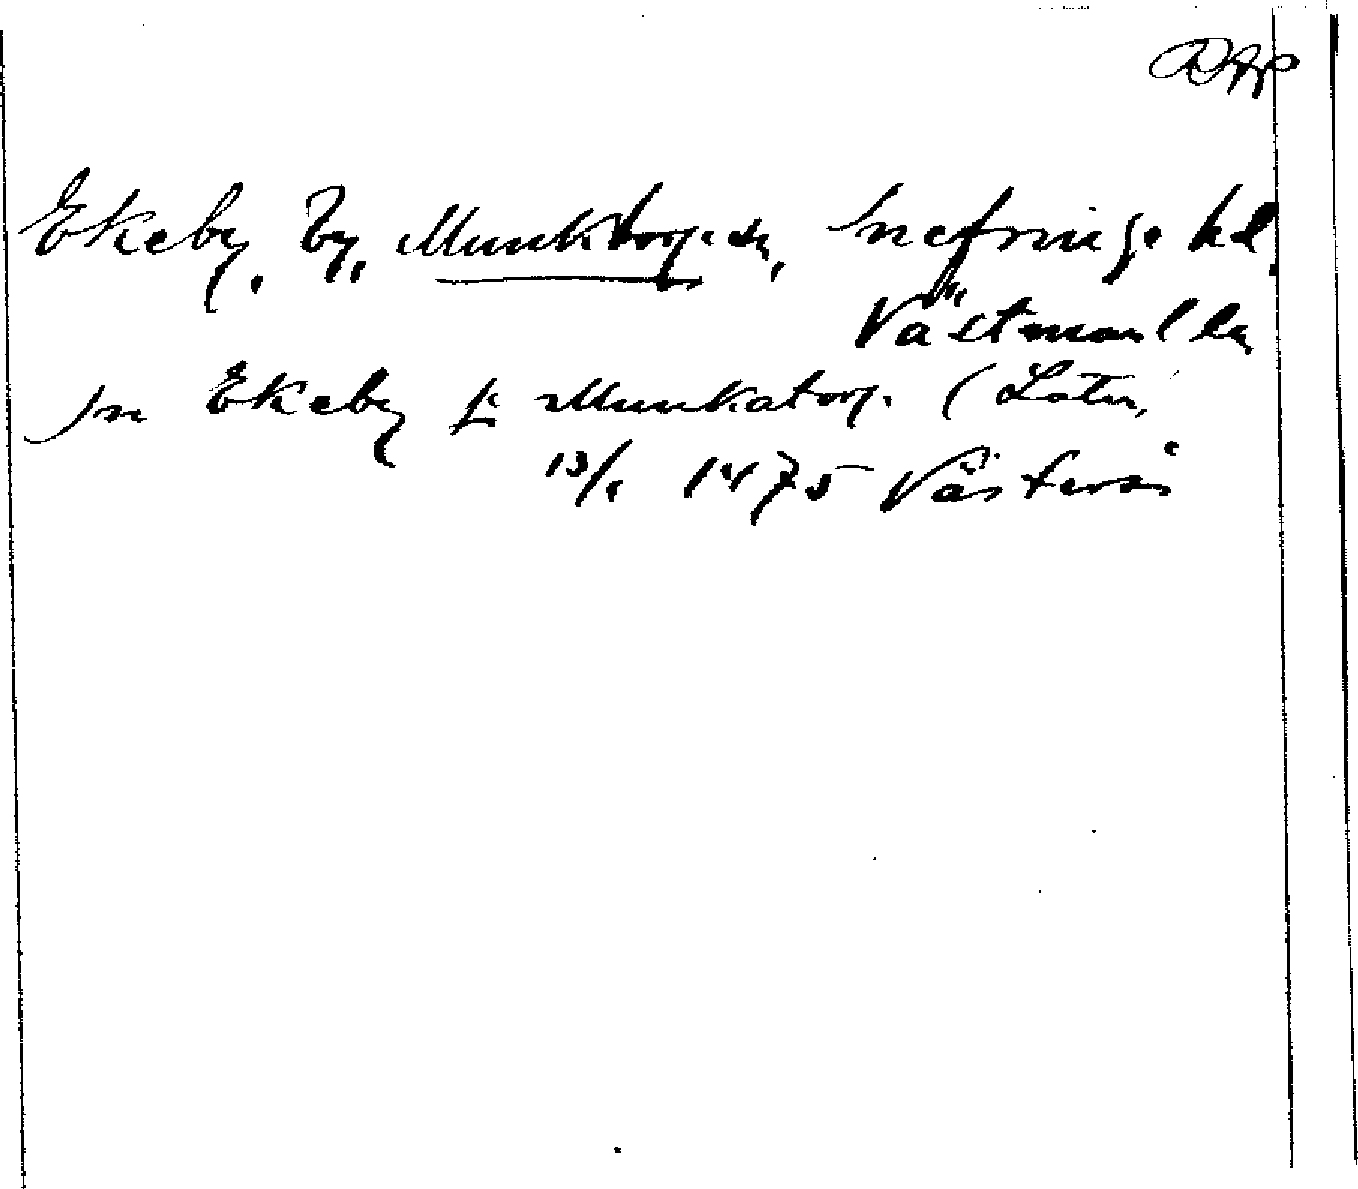 DAP
Ekeby, by, Munktorps sn, Snefringe hd,
Västmanl. län
jn Ekeby j Munkatorp (Latin,
13/1 1475 Västerås